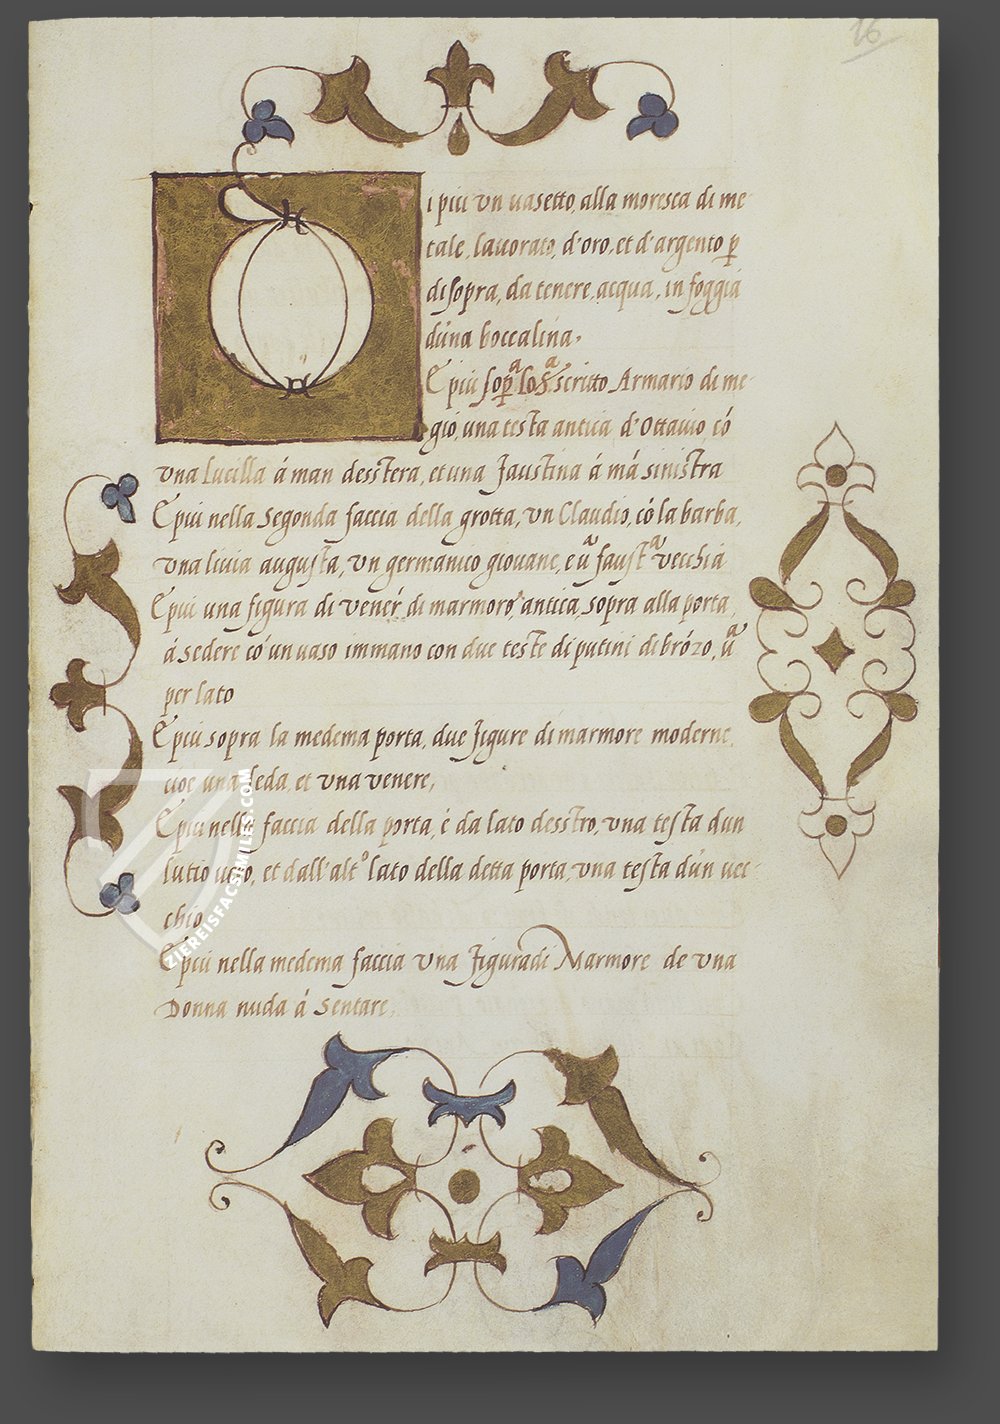 16
i piu vn uasetto, alla moresca di me
tale, lauorato, d'oro, et d'argento p
disopra, da tenere, acqua, in foggia
dúna boccalina,
E piu sopa loSascritto Armario di me
gió, una testa antica d'Ottauio, có
vna Lucilla á man desstera, et una Faustina á má sinistra
E piu nella Segonda faccia della grotta, vn Claudio, có la barba,
vna liuia augusta, vn germanico giouane, e úa faustа vecchia
E piu una figura di venér di marmoro, antica, sopra alla porta
á sedere có un uaso immano con due teste di putini di brózo, úa
per lato
E piu sopra la medema porta, due figure di marmore moderne,
cioe una leda, et vna venere,
E piu nella faccia della porta, é da lato desstro, vna testa dun
lutio uero, et dall'alto lato della detta porta, vna testa dún uec
chio
E piu nella medema faccia vna figura di Marmore de vna
Donna nuda á Sentare,
ZIEREISFACSIMILES.COM